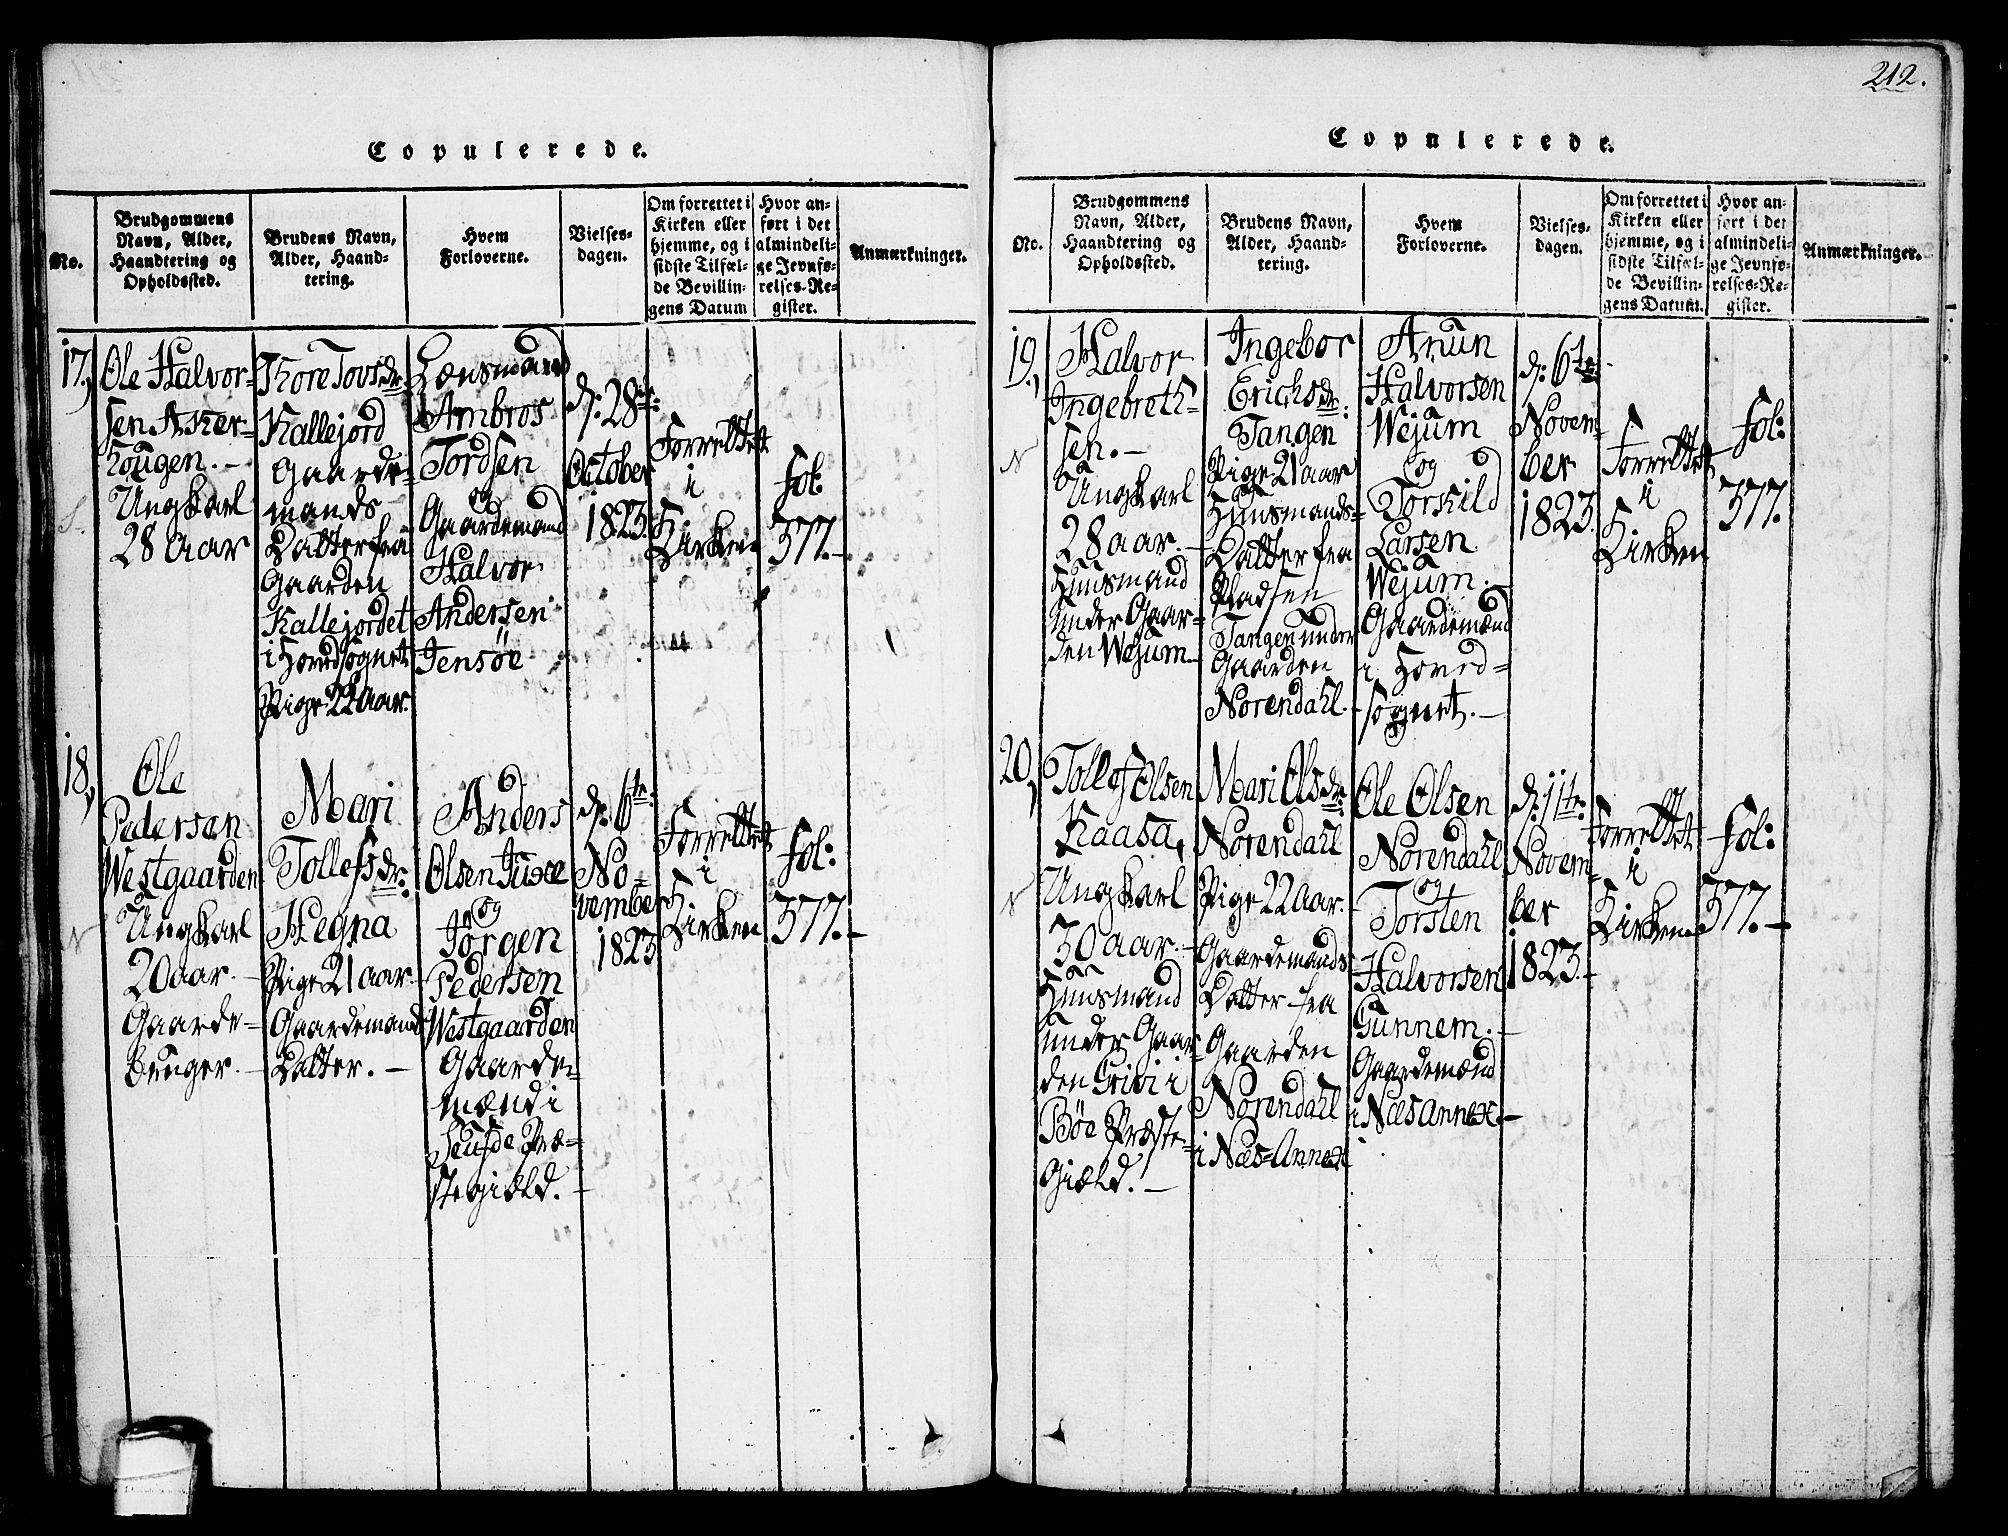 212.
Copulerede.
No.
Brudgommens
Navn, Alder,
Haandtering og
Opholdssted.
Brudens Navn,
Alder, Haand-
tering.
Hvem
Forloverne.
Vielses-
dagen.
Om forrettet i
Kirken eller
hjemme, og i
sidste Tilfæl-
de Bevillin-
gens Datum
Hvor an-
ført i det
almindeli-
ge Jevnfø-
relses-Re-
gister.
Anmærkninger.
17,
Ole Halvor-
sen Asker-
hougen.-
Ungkarl
28 Aar
Thore Tovsdr.
Kallejord
Gaarde-
mands
Datter fra
Gaarden
Kallejordet
i Hovedsognet
Pige 22 Aar.
Lænsmand
Ambros
Tordsen
og
Gaardemand
Halvor
Andersen
Jensöe
d: 28de:
October
1823.
Forrettet
i
Kirken
fol:
377.-
18,
Ole
Pedersen
Westgaarden
Ungkarl
20 aar.-
Gaarde-
bruger.-
Mari
Tollefsdr:
Hegna
Pige 21 aar.
Gaardemand
Datter.-
Anders
Olsen Juxe
og
Jörgen
Pedersen
Westgaarden
Gaarde-
mænd i
Seufde Præ-
stegiæld.-
d: 6te:
No-
vember
1823
Forrettet
i
Kirken
fol:
377.-
Copulerede.
No.
Brudgommens
Navn, Alder,
Haandtering og
Opholdssted.
Brudens Navn,
Alder, Haand-
tering.
Hvem
Forloverne.
Vielses-
dagen.
Om forrettet i
Kirken eller
hjemme, og i
sidste Tilfæl-
de Bevillin-
gens Datum.
Hvor an-
ført i det
almindeli-
ge Jevnfø-
relses-Re-
gister.
Anmærkninger.
19,
Halvor
Ingebreth-
sen.-
Ungkarl
28 aar.-
Huusmand
under Gaar-
den Wejum
Ingebor
Erichsdr:
Tangen
Pige 21 aar
Huusmands-
Datter fra
Pladsen
Tangen under
Gaarden
Norendahl.
Anun
Halvorsen
Wejum
og
Torkild
Larsen
Wejum.
Gaardemænd
i Hoved-
sognet.-
d: 6te
Novem-
ber
1823.
Forrettet
i
Kirken
fol:
377.
20,
Tollef Olsen
Kaasa,
Ungkarl
30 aar.-
Huusmand
under Gaar-
den Grivi i
Böe Præste-
Giæld.-
Mari Olsdr:
Norendahl
Pige 22 Aar.
Gaardemands
Datter fra
Gaarden
Norendahl
i Næs-Annex
Ole Olsen
Norendahl
og
Torsten
Halvorsen
Gunnem.-
Gaardemænd
i Næs Annex.-
d: 11te:
Novem-
ber
1823.-
Forrettet
i
Kirken
fol:
377.-